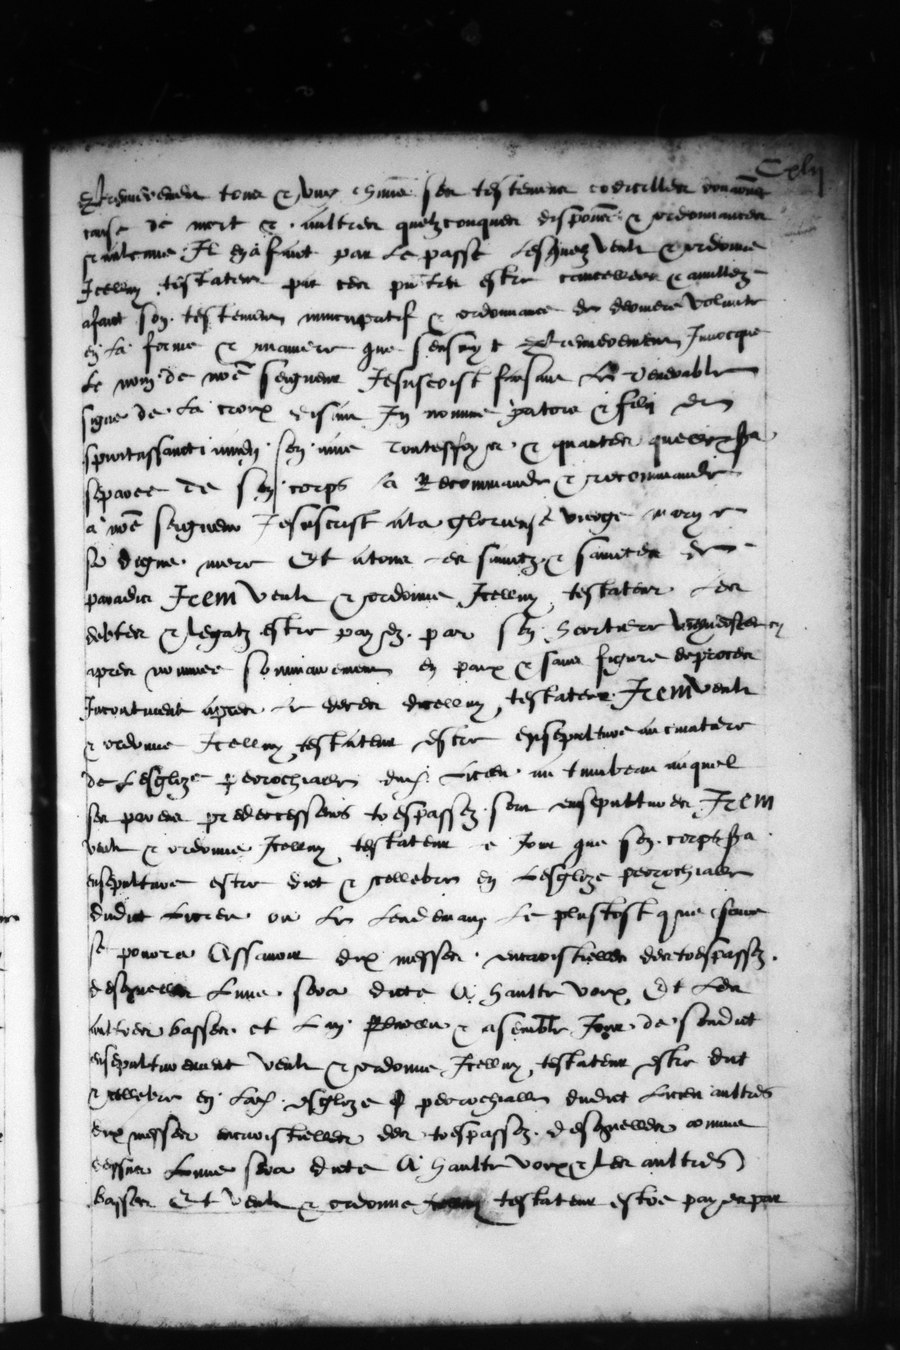 Cxlij
Et premierement tous et ungs chune ses testemens codicilles donaons
cause de mort et aultres quelzconques dispons et ordonnances
si aulcune Il en a faict par le passe lesquelz veult et ordonne
Icelluy testateur par ces pntes estre cancellees et anullez
a faict son testemen nuncupatif et ordonnance de derniere volunte
en la forme et maniere que sensuyt Et premierement Invocque
le nom de noe seigneur Jesuscrist faisant le venerable
signe de la croix disant In nomine patris et filij et
spiritussancti amen son ame toutesfoys et quantes quelle sra
separee de son corps la Recommande et recommande
a noe seigneur Jesuscrist a la glorieuse vierge marye
sa digne mere Et a tous les sainctz et sainctes de
paradis Item veult et ordonne Icelluy testateur ses
debtes et legatz estre payez par son heretiere cy
apres nommee sommairement en paix et sans figure de proces
Incontinent apres le deces dicelluy testateur Item veult
et ordonne Icelluy testateur estre ensepulture au cimatere
de lesglize perrochialle dud. au tumbeau auquel
ses parens predecesseurs trespassez sont ensepulturez Item
veult et ordonne Icelluy testateur le Jour que son corps sra
ensepulture estre dict et cellebre en lesglize perrochialle
dudict ou le lendemain le plustost que faire
se pourra Assavoir dix messes des trespassez
desquelles lune sera dicte A haulte voix Et les
aultres basses et de sondict
ensepulturement veult et ordonne Icelluy testateur estre dict
et cellebre en lad. esglize perrochialle dudict aultres
dix messes des trespassez desquelles comme
dessus lune sera dicte A haulte voix et les aultres
basses Et veult et ordonne Icelluy testateur estre payes par